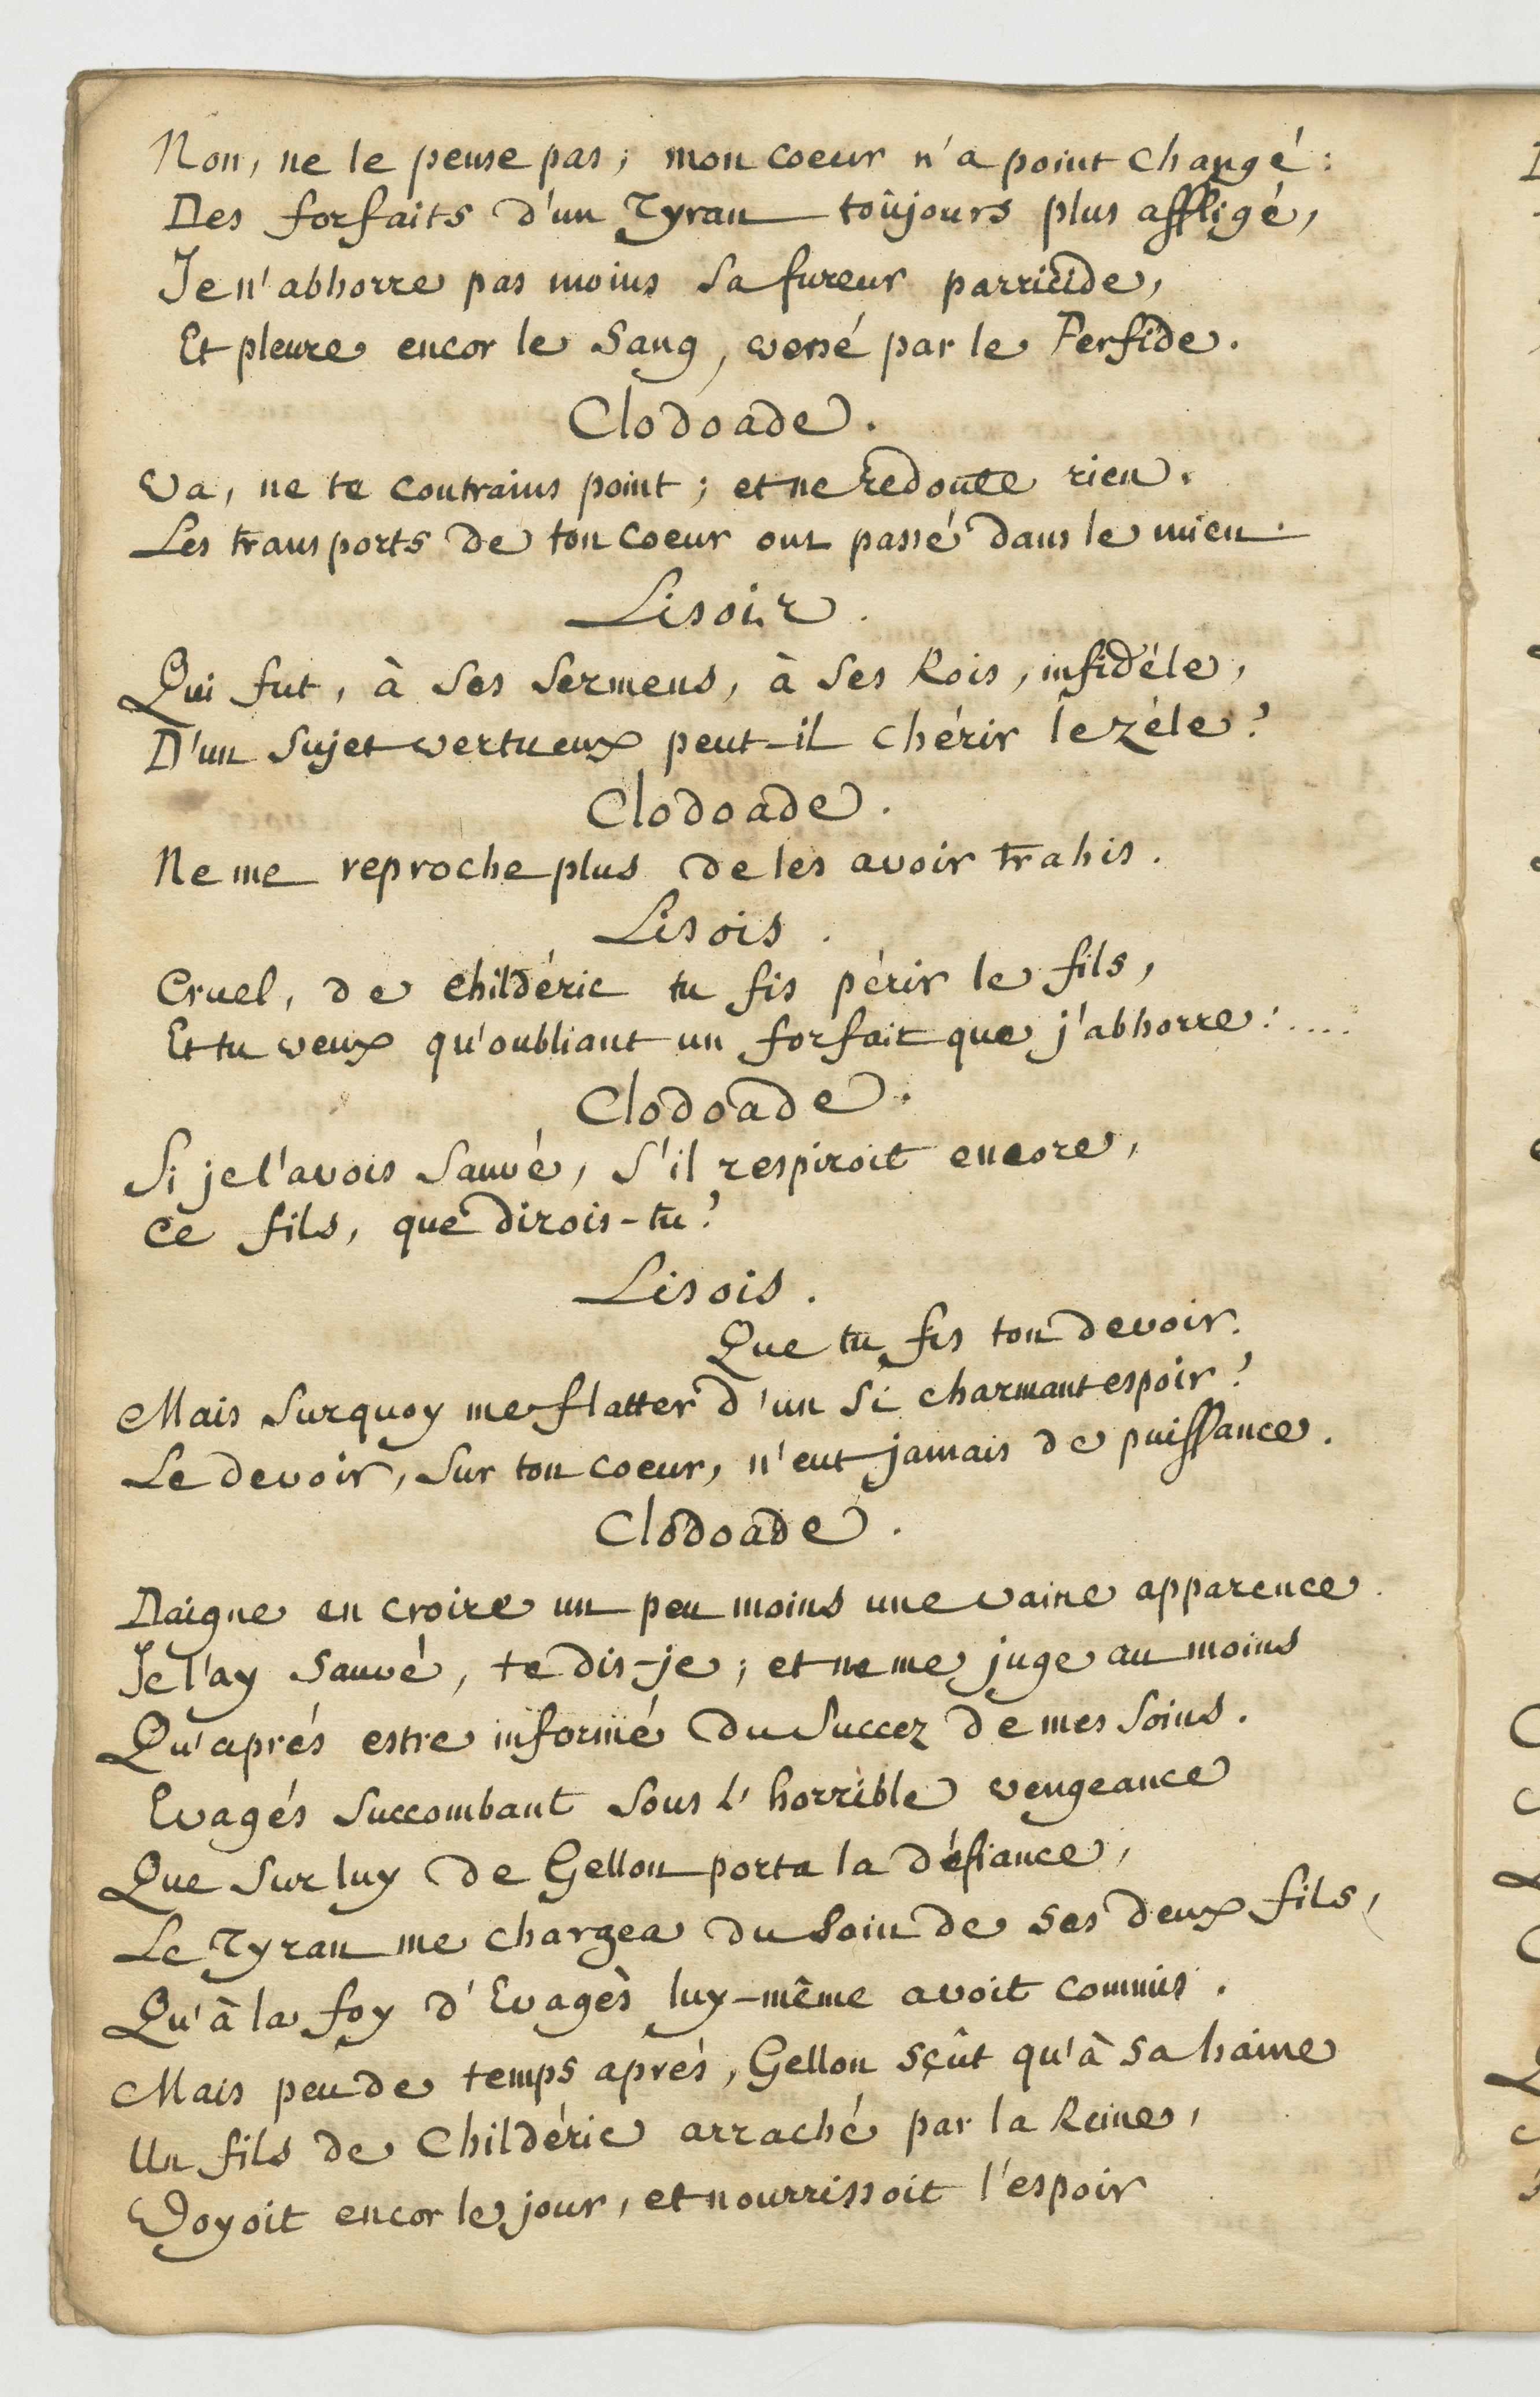 Non, ne le pense pas; mon coeur n'a point changé:
Des forfaits d'un Tyran toûjours plus affligé,
Je n'abhorre pas moins sa fureur parricide,
Et pleure encor le sang, versé par le Perfide.
Clodoade.
Va, ne te contrains point; et ne redoute rien.
Les transports de ton coeur ont passé dans le mien.
Lisois.
Qui fut, à ses sermens, à ses Rois, infidéle,
D'un sujet vertueux peut-il chérir le zéle?
Clodoade.
Ne me reproche plus de les avoir trahis.
Lisois.
Cruel, de Childéric tu fis périr le fils,
Et tu veux qu'oubliant un forfait que j'abhorre!....
Clodoade.
Si je l'avois sauvé, s'il respiroit encore,
Ce fils, que dirois-tu?
Lisois.
Que tu fis ton devoir.
Mais surquoy me flatter d'un si charmant espoir?
Le devoir, sur ton coeur, n'eut jamais de puissance.
Clodoade.
Daigne en croire un peu moins une vaine apparence.
Je l'ay sauvé, te dis-je; et ne me juge au moins
Qu'aprés estre informé du succez de mes soins.
Evagés succombant sous l'horrible vengeance
Que sur luy de Gellon porta la défiance,
Le Tyran me chargea du soin de ses deux fils,
Qu'à la foy d'Evagès luy-même avoit commis.
Mais peu de temps aprés, Gellon sçût qu'à sa haine
Un fils de Childéric arraché par la Reine,
Voyoit encor le jour, et nourrissoit l'espoir